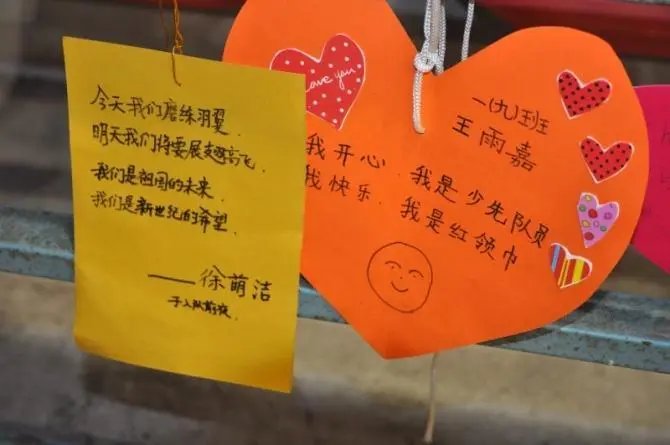 今天我们磨练羽翼
明天我们将要展翅高飞.
我们是祖国的未来
我们是新世纪的希望.
——徐萌洁
于入队前夜.
Love you
一(九)班
王雨嘉
我开心.我是少先队员
我快乐.我是红领巾